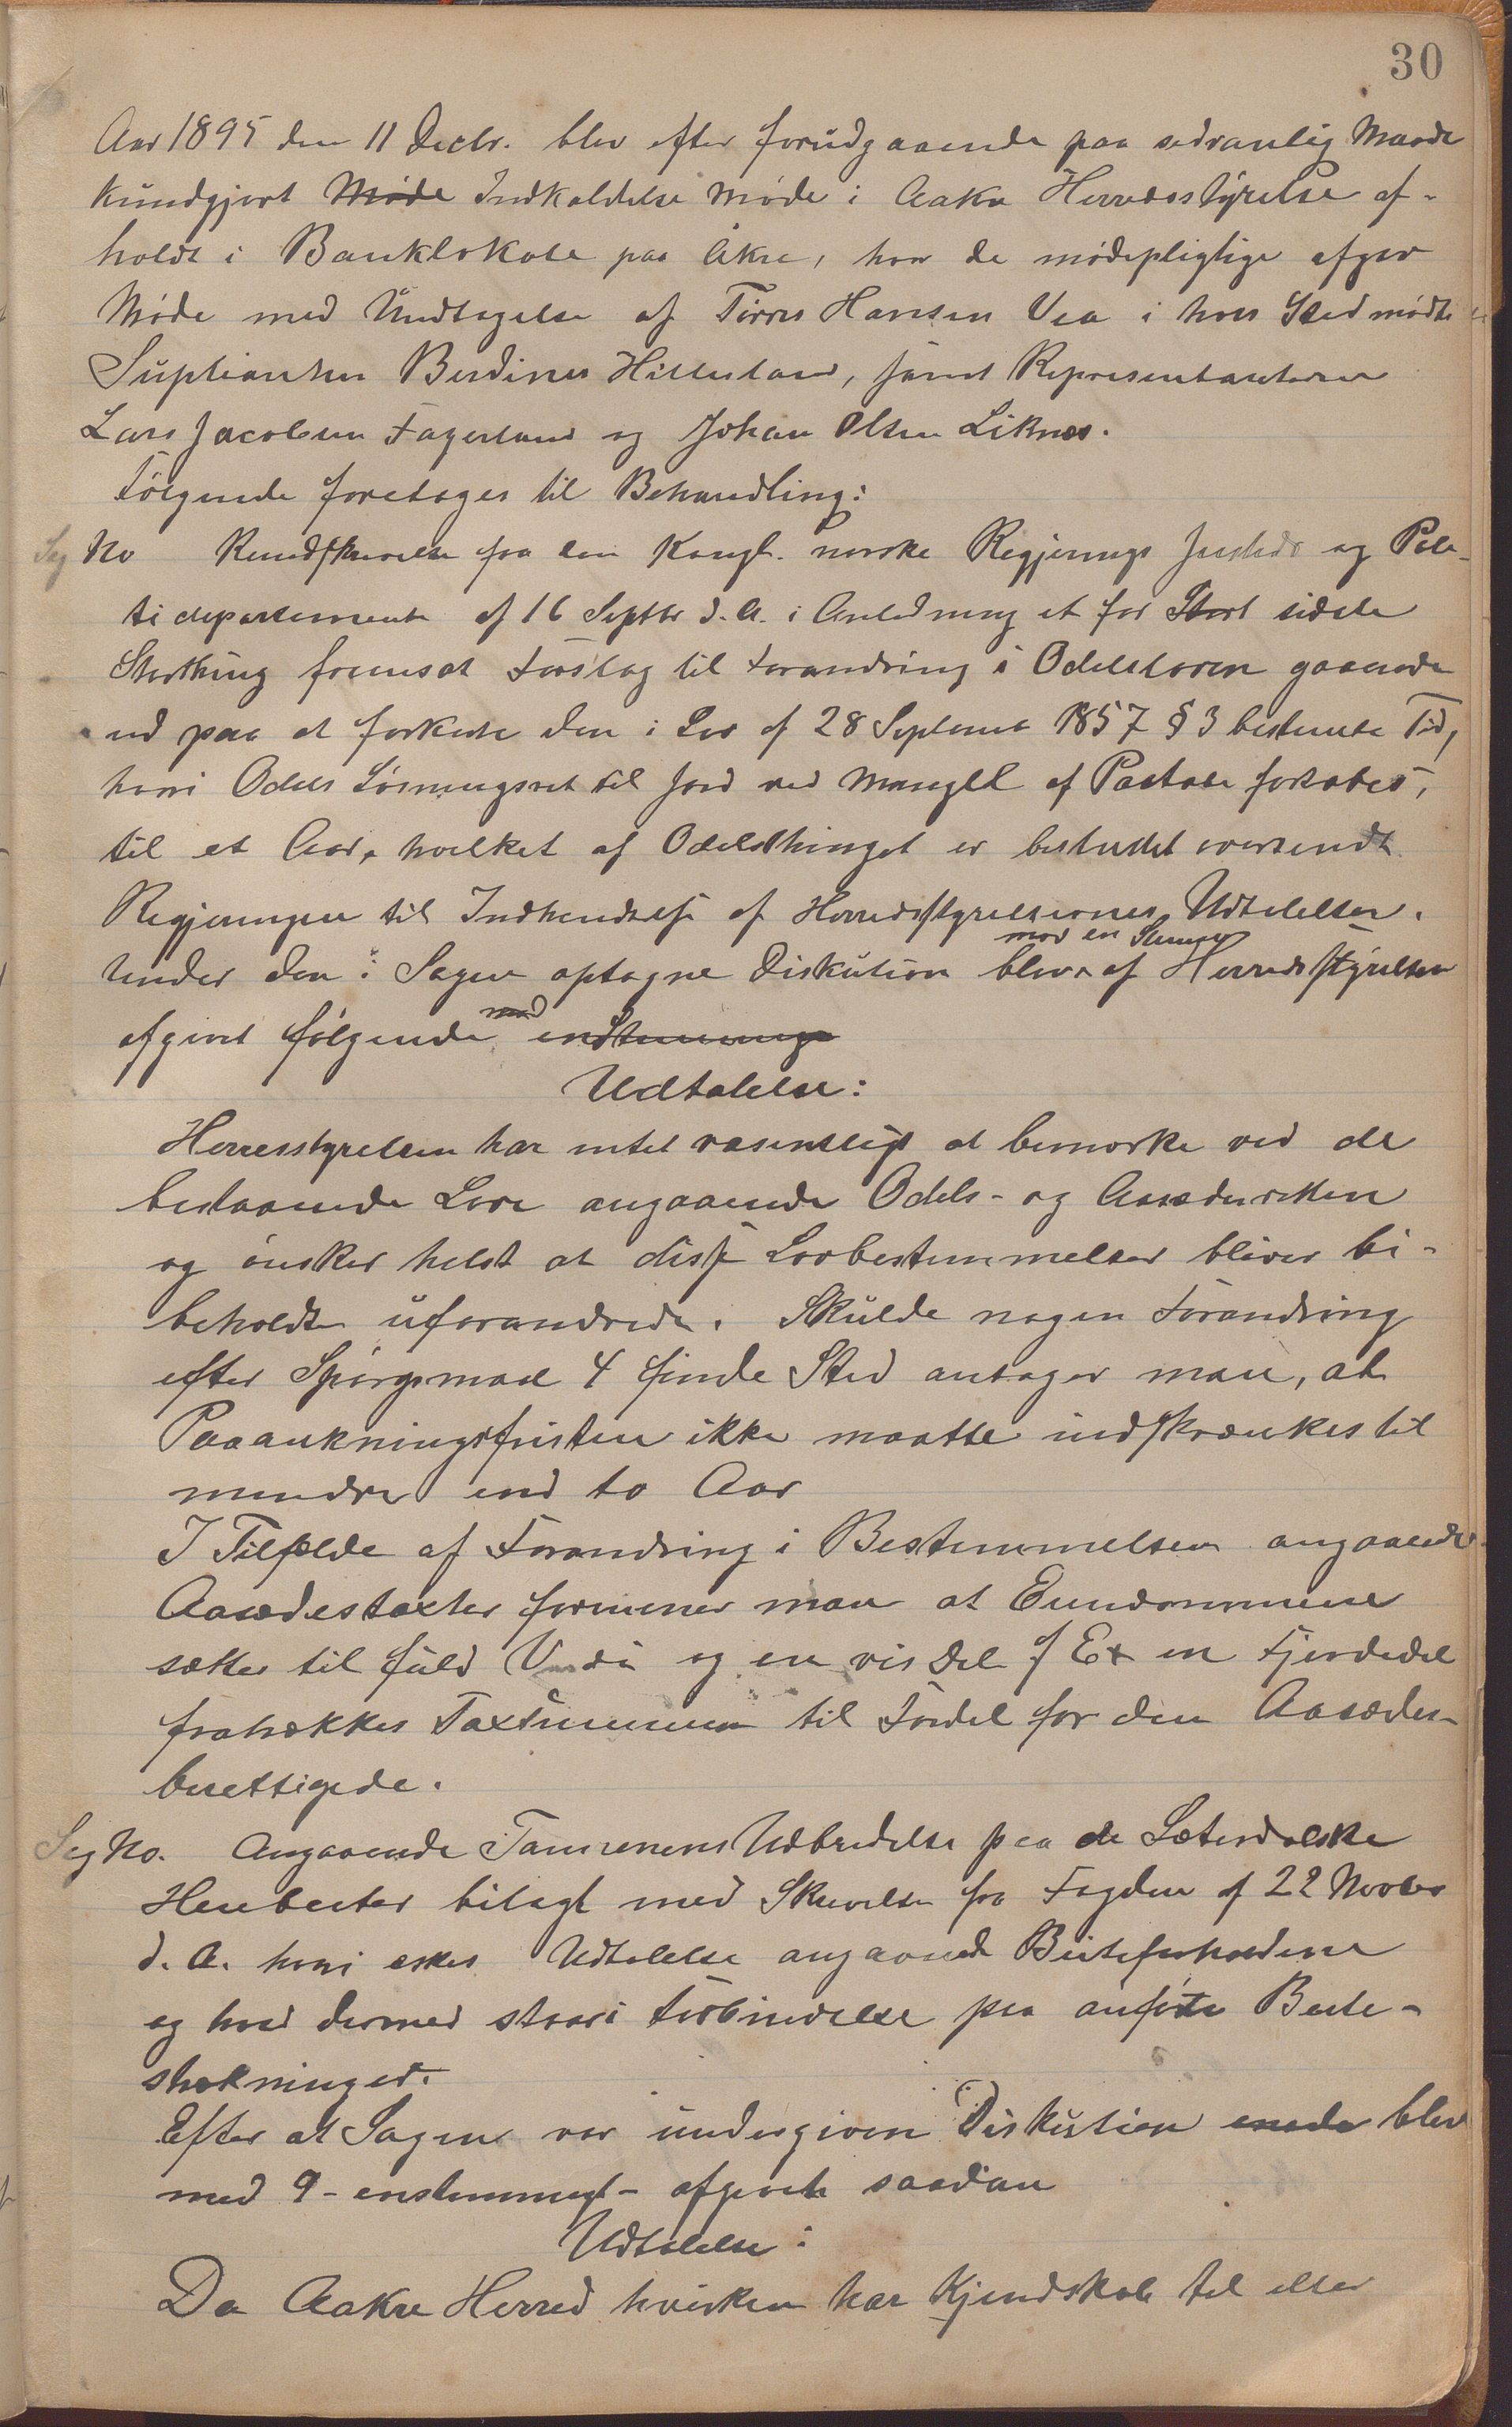 30
Aar 1895 den 11 Decbr. blev efter forudgaaende paa sedvanlig Maade
kundgjort Møde Indkaldelse Møde i Aakre Herredsstyrelse af-
holdt i Banklokale paa Åkre, hvor de mødepligtige afgav
Møde med Undtagelse af Tørres Hansen Vea i hvis Sted mødte
Suplianten Berdines Hillesland, samt Representanterne
Lars Jacobsen Fagerland og Johan Olsen Liknes.
Følgende foretages til Behandling:
Sag No Rundskrivelse fra den Kongl. norske Regjerings Justids og Poli-
tidepartement af 16 Septbr d. A. i Anledning et for Stort sidste
Storthing fremsat Forslag til Forandring i Odelsloven gaaende
ud paa at forkorte den i Lov af 28 September 1857 § 3 bestemte Tid,
hvori Odels Løsningsret til Jord ved Mangel af Paatale fortabes,
til et Aar, hvilket af Odelsthinget er besluttet oversendt
Regjeringen til Indhendtelse af Herredsstyrelsernes Udtalelser.
mod en Stemme
Under den i Sagen optagne Diskution blev af Herredsstyrelsen
mod
afgivet følgende enstemmige
Udtalelse:
Herresstyrelsen har intet væsentligt at bemærke ved de
bestaaende Love angaaende Odels- og Aasædesretten
og ønsker helst at disse Lovbestemmelser bliver bi-
beholdt uforandrede. Skulde nogen Forandring
efter Spørgsmaal 4 finde Sted antager man, at
Paaankningsfristen ikke maatte indskrænkes til
mindre end to Aar
I Tilfælde af Forandring i Bestemmelsen angaaende
Aasædestaxter formener man at Eiendommene
sættes til fuld Værdi og en vis Del f Ex en Fjerdedel
fratrækkes Taxtsummen til Fordel for den Aasædes-
berettigede.
Sag No. Angaaende Tamrenens Udbredelse paa de Sæterdalske
Heiebeiter bilagt med Skrivelse fra Fogden af 22 Novbr
d. A. hvori æskes Udtalelse angaaende Beiteforholdene
og hvad dermed staar i Forbindelse paa anførte Beite-
strækninger.
Efter at Sagen var undergiven Diskution enede blev
med 9 - enstemmigt - afgivet saadan
Udtalelse:
Da Aakre Herred hverken har Kjendskab til eller